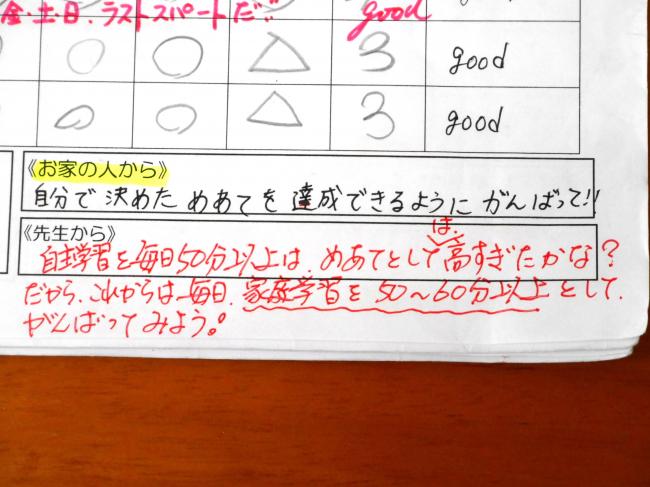 金・土・日、ラストスパートだ!! good
3 good
3 good
《お家の人から》
自分で決めためあてを達成できるようにがんばって!!
《先生から》
は、
自主学習を毎日50分以上は、めあてとして高すぎたかな?
だから、これからは毎日、家庭学習を50～60分以上として、
がんばってみよう。